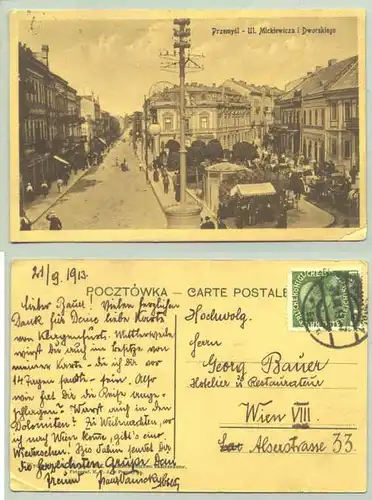 Przemyśl - Ul. Mickiewicza i Dworskiego
21/9. 1913
POCZTÓWKA. — CARTE POSTALE
Lieber Bauer! Vielen herzlichen
Dank für Deine liebe Karte
von Klagenfurt. Mittlerweile
wirst du auch im Besitze von
meiner Karte - die ich dir vor
14 Tagen sandte - sein. Also
wie fiel dir die Reise
Warst auch in den
Dolomiten? Zu Weihnachten, wo
ich nach Wien komme, gibt's ein
Wiedersehen. Bis dahin sendet dir
die herzlichsten Grüße Dein
Freund
Hochwolg.
Herrn
Georg Bauer
Hotelier u Restaurateur
Wien VIII
Alserstrasse 33